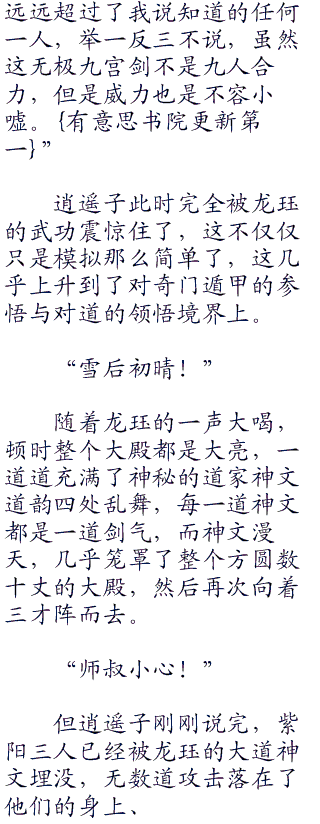 远远超过了我说知道的任何
一人，举一反三不说，虽然
这无极九宫剑不是九人合
力，但是威力也是不容小
嘘。{有意思书院更新第
一}”
逍遥子此时完全被龙珏
的武功震惊住了，这不仅仅
只是模拟那么简单了，这几
乎上升到了对奇门遁甲的参
悟与对道的领悟境界上。
“雪后初晴！”
随着龙珏的一声大喝，
顿时整个大殿都是大亮，一
道道充满了神秘的道家神文
道韵四处乱舞，每一道神文
都是一道剑气，而神文漫
天，几乎笼罩了整个方圆数
十丈的大殿，然后再次向着
三才阵而去。
“师叔小心！”
但逍遥子刚刚说完，紫
阳三人已经被龙珏的大道神
文埋没，无数道攻击落在了
他们的身上、